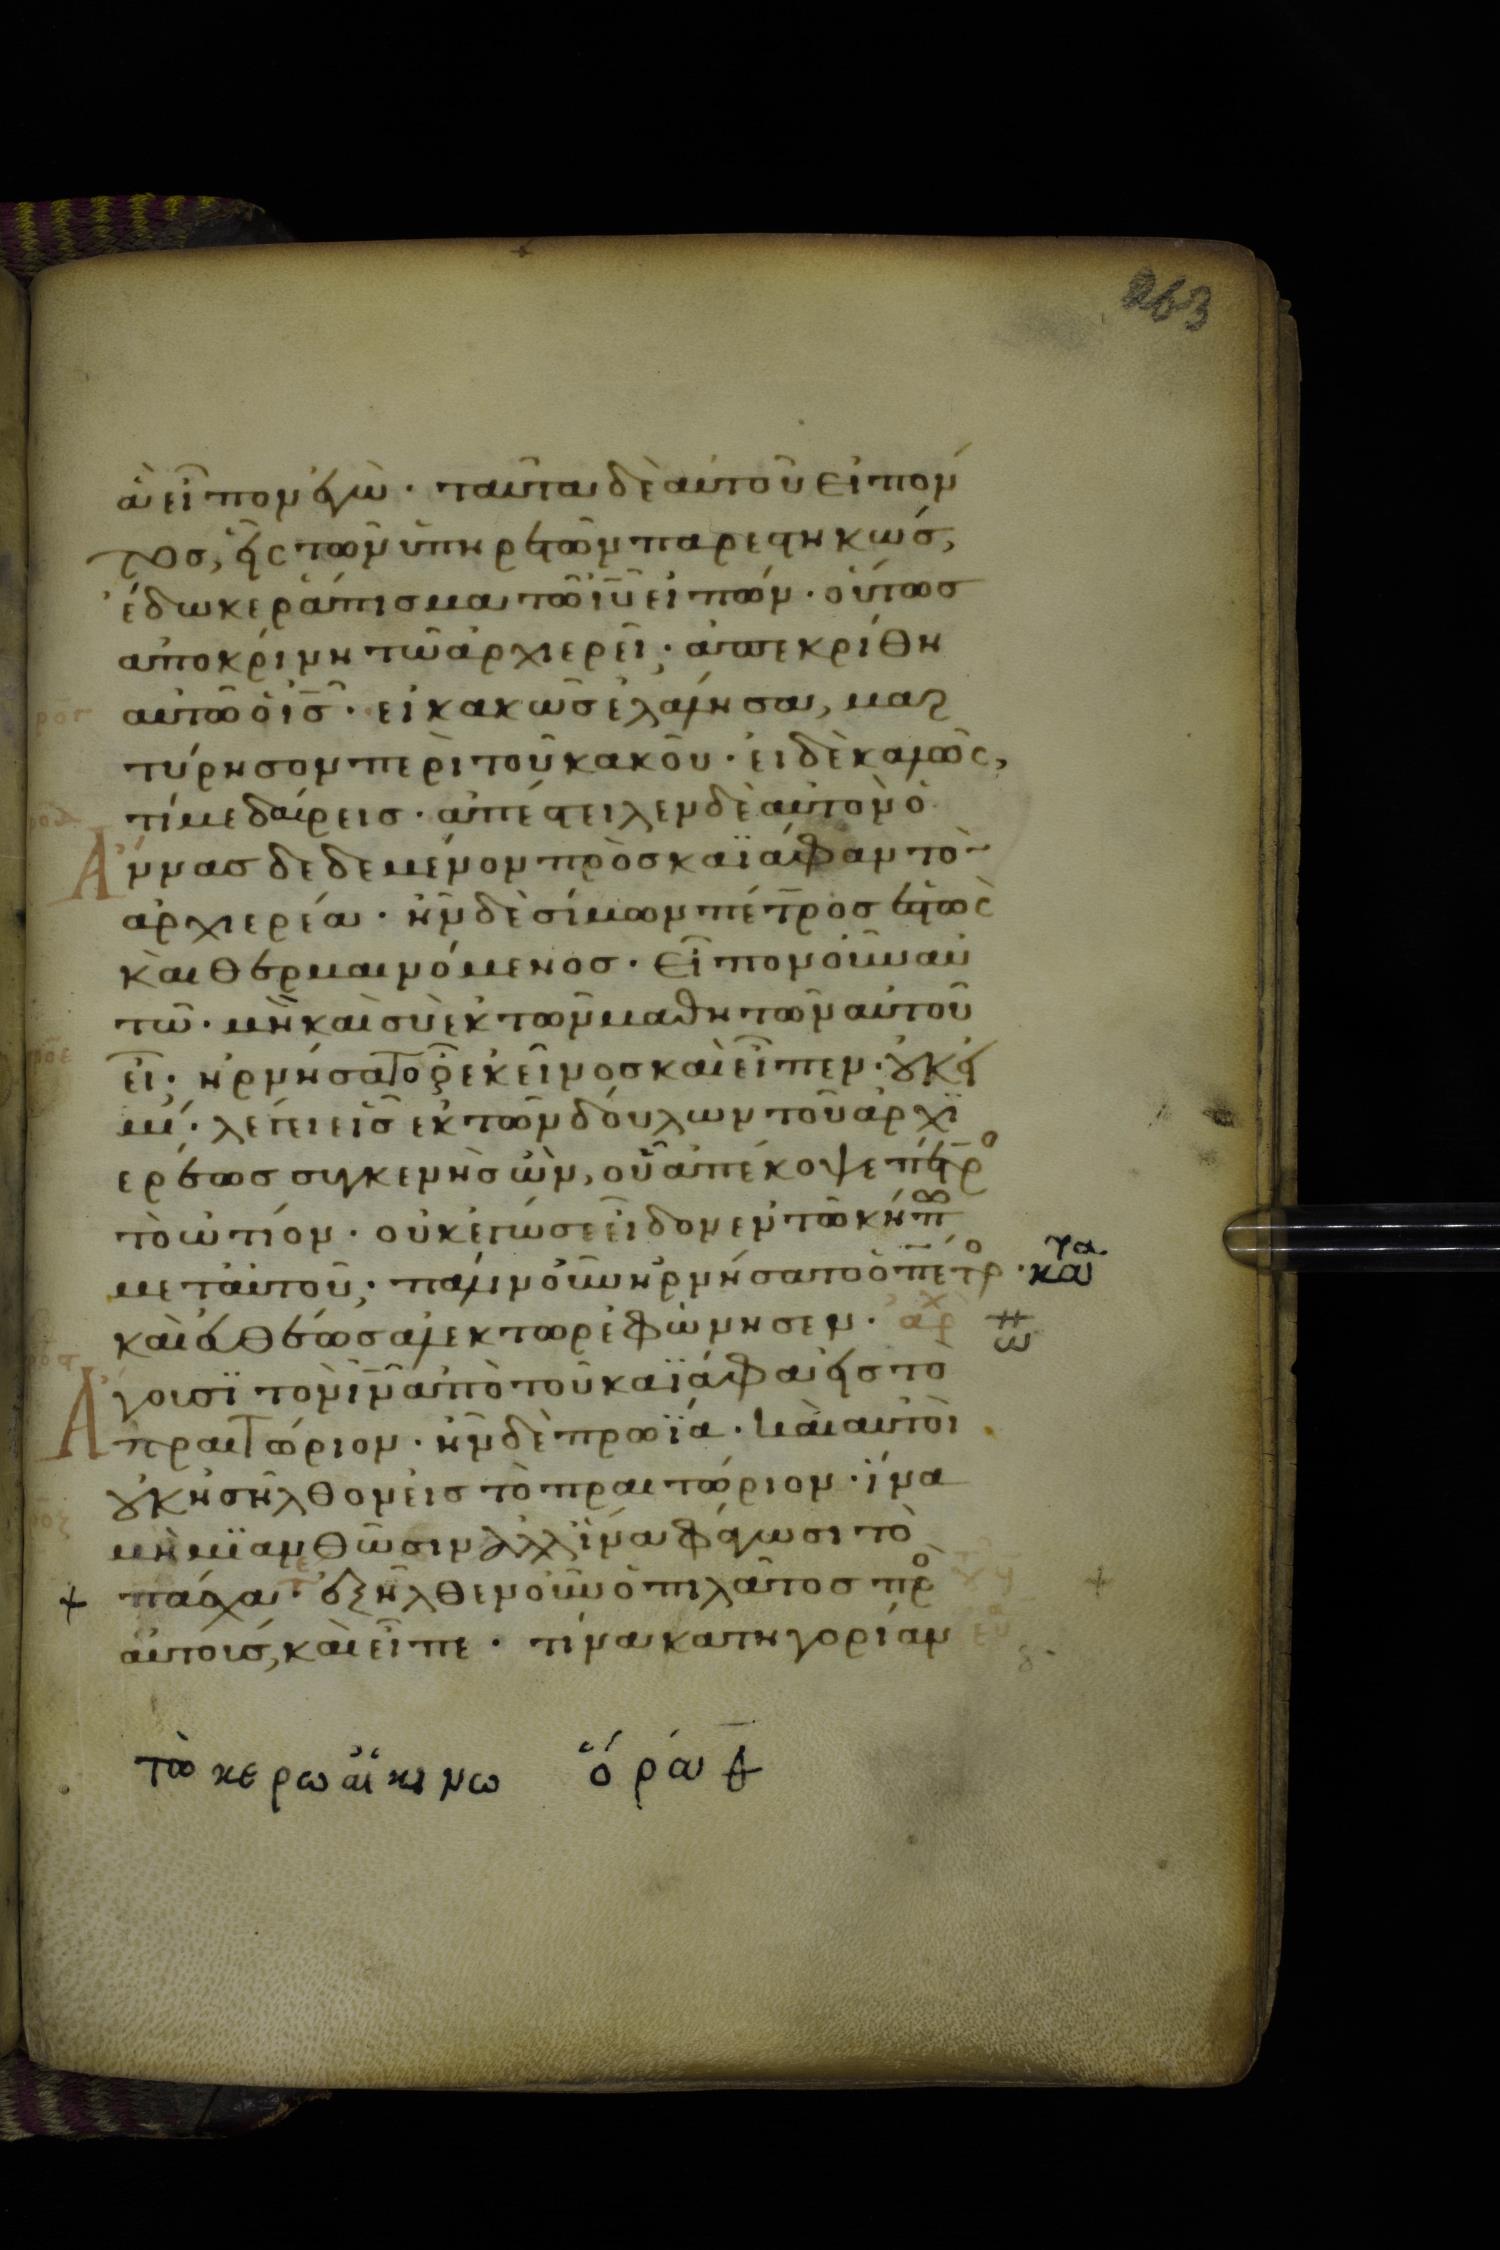 263
ἃ εἶπον ἐγώ · ταῦτα δὲ αὐτοῦ εἰπόν
τος, εἷς τῶν ὑπηρετῶν παρεστηκώς,
ἔδωκε ράπισμα τῶ ἰῦ εἰπών · οὕτως
ἀποκρίνη τῶ ἀρχιερεῖ · ἀπεκρίθη
αὐτῶ ὁ ἰς · εἰ κακῶς ἐλάλησα, μαρ
τύρησον περὶ τοῦ κακοῦ · εἰ δὲ καλῶς,
τί με δαίρεις · ἀπέστειλεν δὲ αὐτὸν ὁ
Ἄννας δεδεμένον πρὸς καϊάφαν τὸν
ἀρχιερέα · ἦν δὲ σίμων πέτρος ἑστὼς
καὶ θερμαινόμενος · εἶπον οὖν αὐ
τῶ · μὴ καὶ σὺ ἐκ τῶν μαθητῶν αὐτοῦ
εἶ · ἠρνήσατο ἐκεῖνος καὶ εἶπεν · οὐκ εἰ
μί · λέγει εἷς ἐκ τῶν δούλων τοῦ ἀρχϊ
ερέως συγγενὴς ὢν, οὗ ἀπέκοψε πέτρο
τὸ ὠτίον · οὐκ ἐγώ σε εἶδον ἐν τῶ κήπω
μετ αὐτοῦ · πάλιν οὖν ἠρνήσατο ὁ πέτρο ·
καὶ εὐθέως ἀλέκτωρ ἐφώνησεν · ἀρχ
Ἄγουσϊ τὸν ἰν ἀπὸ τοῦ καϊάφα εἰς τὸ
πραιτώριον · ἦν δὲ πρωϊα · καὶ αὐτοὶ
οὐκ εἰσῆλθον εἰς τὸ πραιτώριον · ἵνα
μὴ μϊανθῶσιν ἀλλ ἵνα φάγωσι τὸ
πάσχα · ἐξῆλθεν οὖν ὁ πιλᾶτος πρὸ
αὐτούς, καὶ εἶπε · τίνα κατηγορίαν